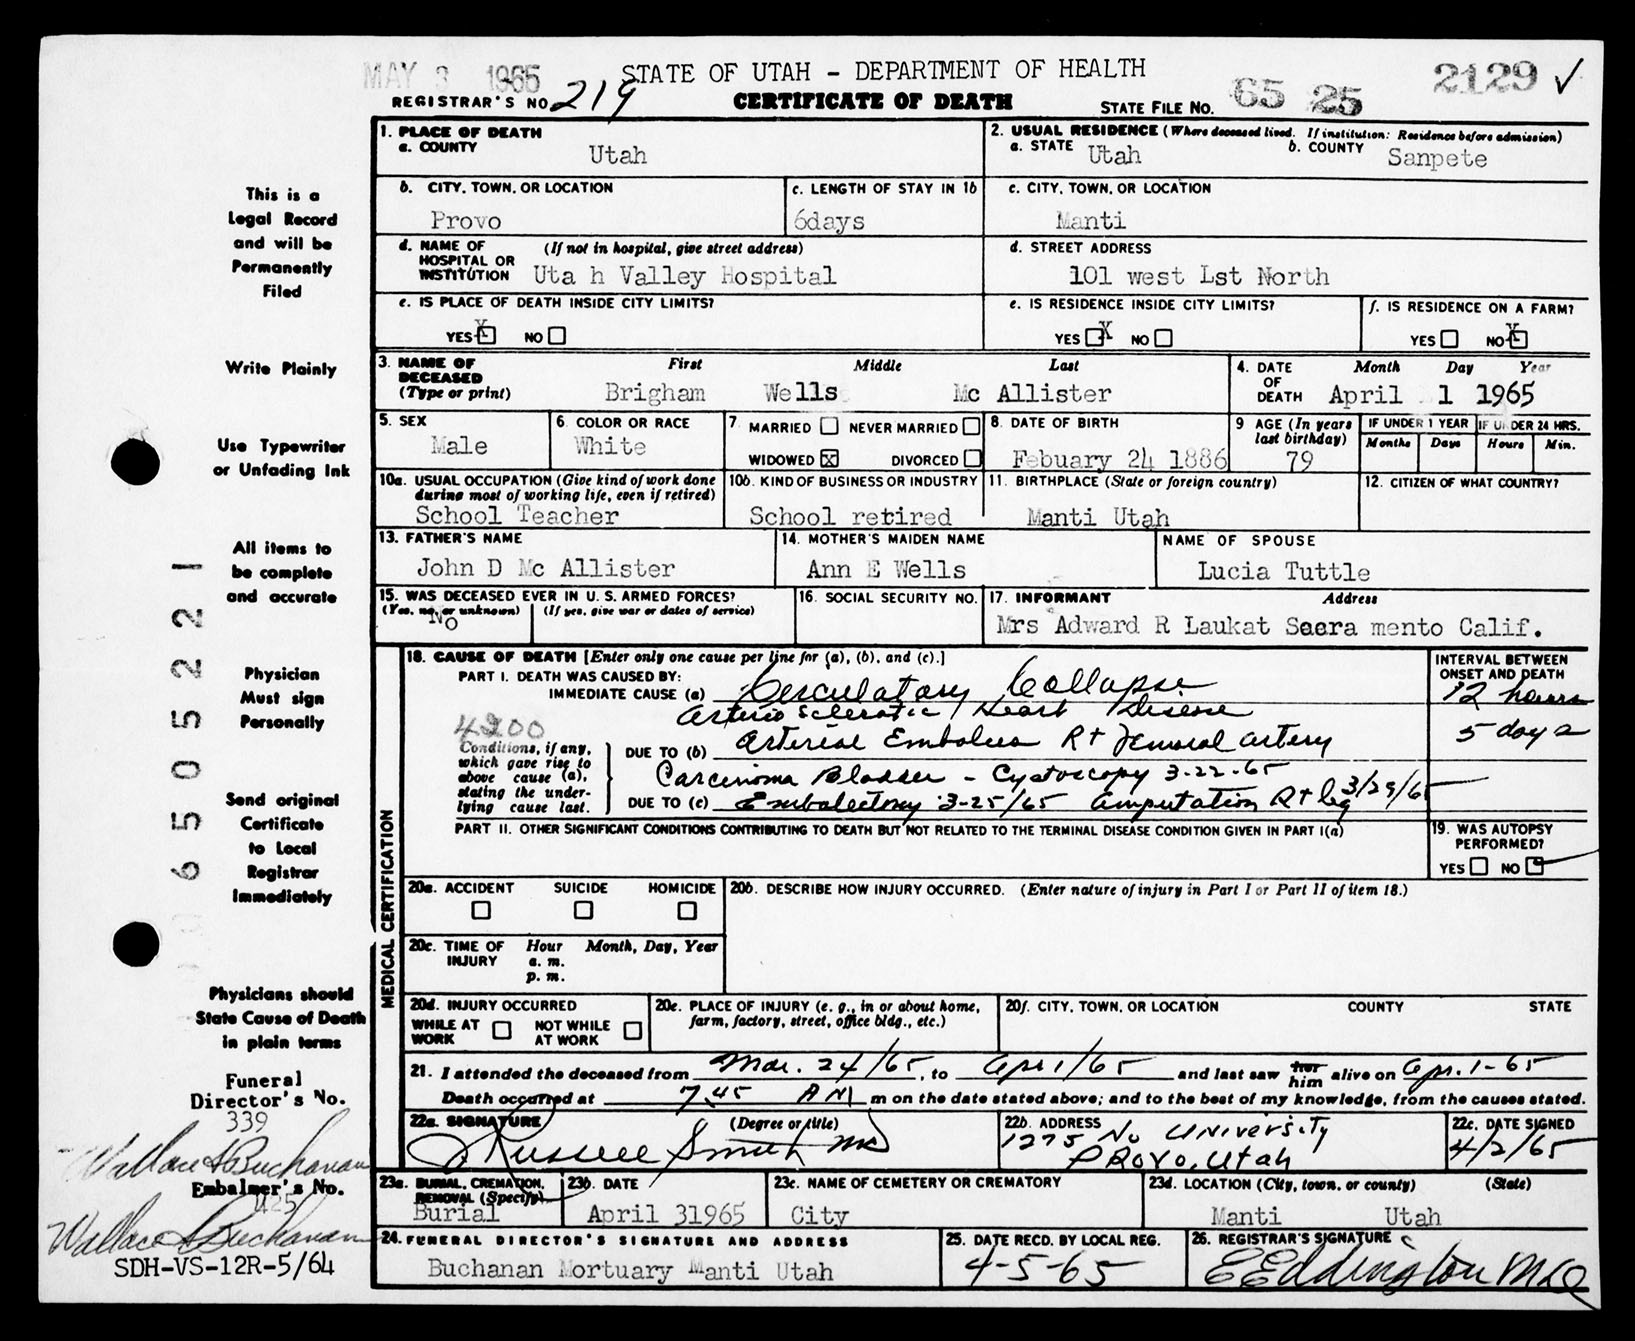 MAY 3 1965
STATE OF UTAH - DEPARTMENT OF HEALTH
2129 ✓
REGISTRAR'S NO 219
CERTIFICATE OF DEATH
STATE FILE NO. 65 25
1. PLACE OF DEATH
a. COUNTY Utah
2. USUAL RESIDENCE (Where deceased lived. If institution: Residence before admission)
a. STATE Utah b. COUNTY Sanpete
b. CITY, TOWN, OR LOCATION
Provo
c. LENGTH OF STAY IN 1b
6days
c. CITY, TOWN, OR LOCATION
Manti
d. NAME OF HOSPITAL OR INSTITUTION (If not in hospital, give street address)
Uta h Valley Hospital
d. STREET ADDRESS
101 west Lst North
e. IS PLACE OF DEATH INSIDE CITY LIMITS?
YES X NO
e. IS RESIDENCE INSIDE CITY LIMITS?
YES X NO
f. IS RESIDENCE ON A FARM?
YES NO X
3. NAME OF DECEASED (Type or print)
First Middle Last
Brigham Wells Mc Allister
4. DATE OF DEATH
Month Day Year
April 1 1965
5. SEX
Male
6. COLOR OR RACE
White
7. MARRIED NEVER MARRIED
WIDOWED X DIVORCED
8. DATE OF BIRTH
Febuary 24 1886
9 AGE (In years last birthday)
79
IF UNDER 1 YEAR
Months Days
IF UNDER 24 HRS.
Hours Min.
10a. USUAL OCCUPATION (Give kind of work done during most of working life, even if retired)
School Teacher
10b. KIND OF BUSINESS OR INDUSTRY
School retired
11. BIRTHPLACE (State or foreign country)
Manti Utah
12. CITIZEN OF WHAT COUNTRY?
13. FATHER'S NAME
John D Mc Allister
14. MOTHER'S MAIDEN NAME
Ann E Wells
NAME OF SPOUSE
Lucia Tuttle
15. WAS DECEASED EVER IN U. S. ARMED FORCES?
(Yes, no, or unknown) (If yes, give war or dates of service)
No
16. SOCIAL SECURITY NO.
17. INFORMANT Address
Mrs Adward R Laukat Sacra mento Calif.
MEDICAL CERTIFICATION
18. CAUSE OF DEATH [Enter only one cause per line for (a), (b), and (c).]
INTERVAL BETWEEN ONSET AND DEATH
PART I. DEATH WAS CAUSED BY:
IMMEDIATE CAUSE (a) Cerculatory Collapse
12 hours
Arterio Sclerotic Heart Disease
4200
Conditions, if any, which gave rise to above cause (a), stating the underlying cause last.
DUE TO (b) Arterial Embolus Rt Femoral artery
5 days
Carcinoma Bladder - Cystoscopy 3-22-65
DUE TO (c) Embolectomy 3-25/65 Amputation Rt leg 3/29/65
PART II. OTHER SIGNIFICANT CONDITIONS CONTRIBUTING TO DEATH BUT NOT RELATED TO THE TERMINAL DISEASE CONDITION GIVEN IN PART I(a)
19. WAS AUTOPSY PERFORMED?
YES NO
20a. ACCIDENT SUICIDE HOMICIDE
20b. DESCRIBE HOW INJURY OCCURRED. (Enter nature of injury in Part I or Part II of item 18.)
20c. TIME OF INJURY
Hour Month, Day, Year
a. m.
p. m.
20d. INJURY OCCURRED
WHILE AT WORK NOT WHILE AT WORK
20e. PLACE OF INJURY (e. g., in or about home, farm, factory, street, office bldg., etc.)
20f. CITY, TOWN, OR LOCATION COUNTY STATE
21. I attended the deceased from Mar. 24/65, to Apr 1/65 and last saw her him alive on Apr. 1-65
Death occurred at 7.45 AM m on the date stated above; and to the best of my knowledge, from the causes stated.
22a. SIGNATURE (Degree or title)
J Russell Smith MD
22b. ADDRESS
1275 No University
Provo, Utah
22c. DATE SIGNED
4/2/65
23a. BURIAL, CREMATION, REMOVAL (Specify)
Burial
23b. DATE
April 31965
23c. NAME OF CEMETERY OR CREMATORY
City
23d. LOCATION (City, town, or county) (State)
Manti Utah
24. FUNERAL DIRECTOR'S SIGNATURE AND ADDRESS
Buchanan Mortuary Manti Utah
25. DATE RECD. BY LOCAL REG.
4-5-65
26. REGISTRAR'S SIGNATURE
E E Eddington MD
This is a
Legal Record
and will be
Permanently
Filed
Write Plainly
Use Typewriter
or Unfading Ink
All items to
be complete
and accurate
Physician
Must sign
Personally
Send original
Certificate
to Local
Registrar
Immediately
Physicians should
State Cause of Death
in plain terms
65 05221
Funeral
Director's No.
339
Wallace S Buchanan
Embalmer's No.
425
Wallace S Buchanan
SDH-VS-12R-5/64